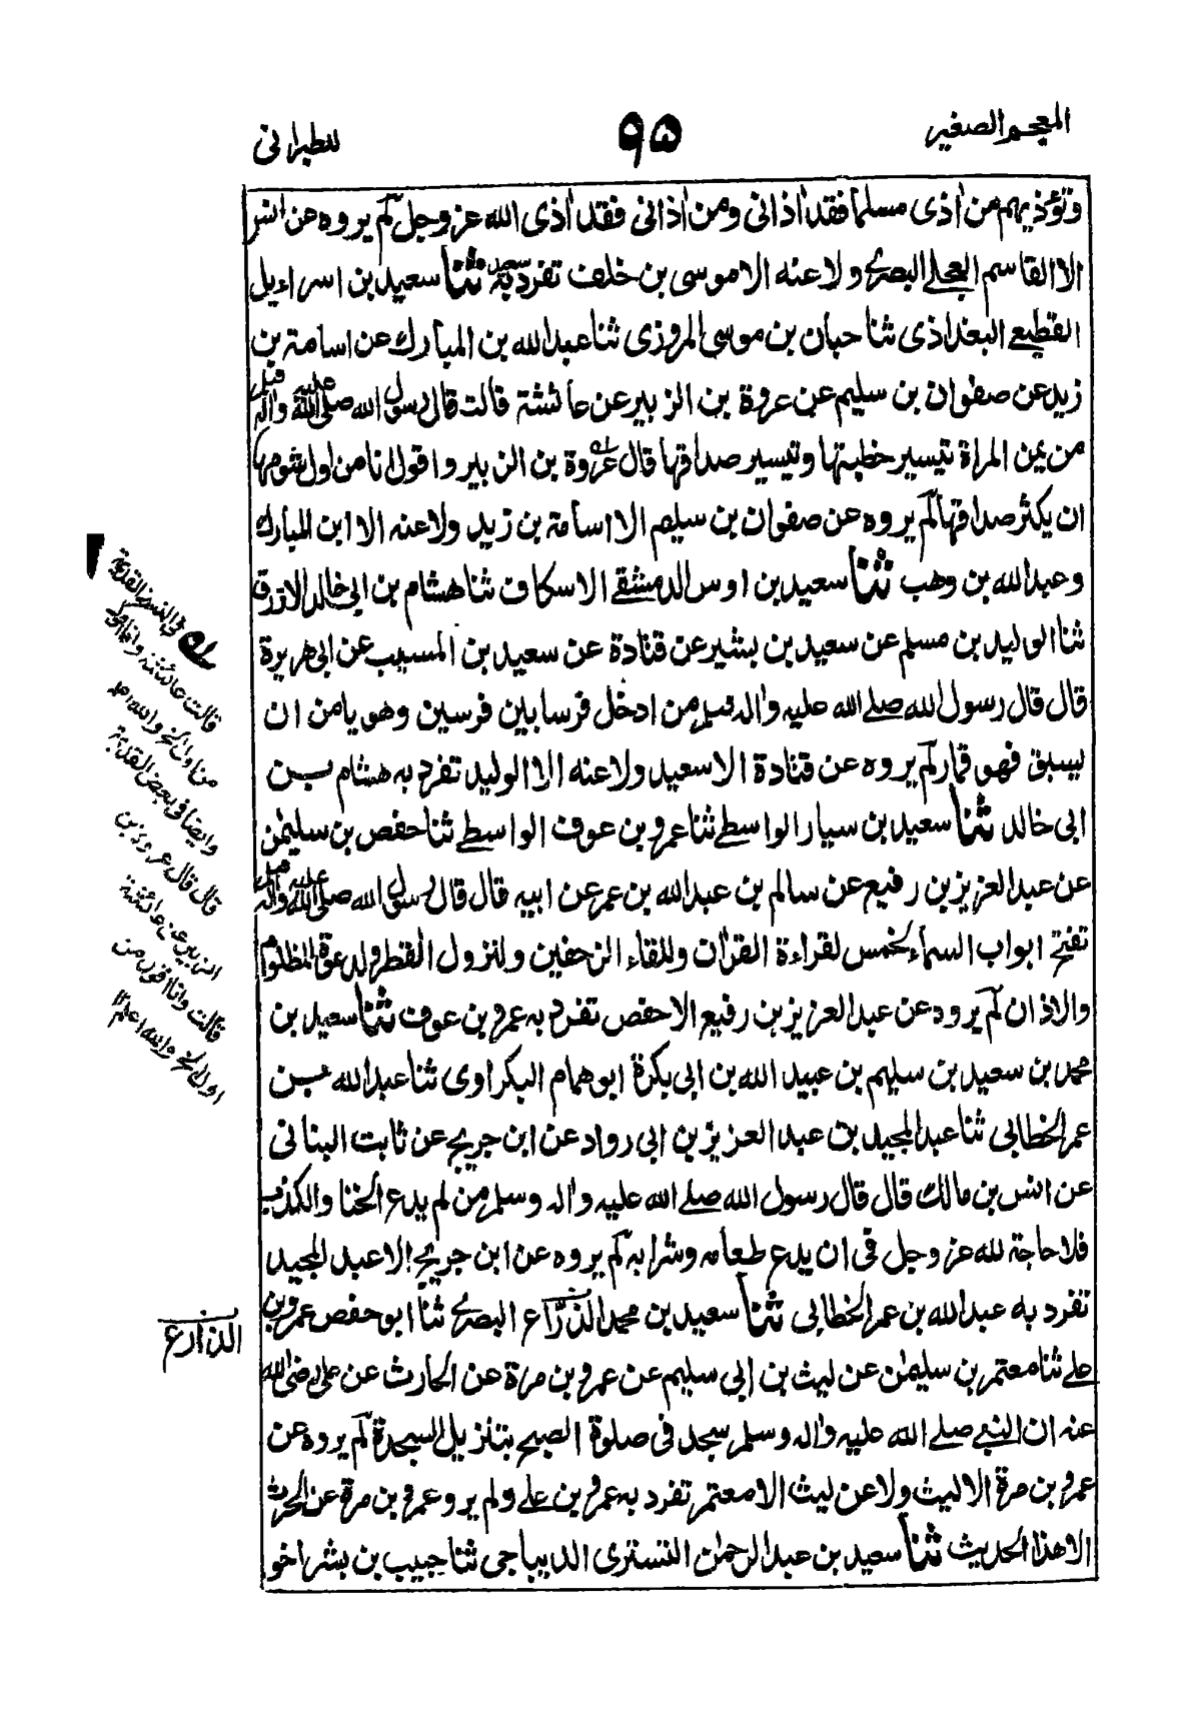 المعجم الصغير
٩٥
للطبرانی
وتؤذيهم من اذى مسلما فقد اذانى ومن اذانى فقد اذى الله عز وجل لم يروه عن انس
الا القاسم العجلے البصرے ولا عنه الا موسى بن خلف تفرد به سعيد ثنا سعيد بن اسراءيل
القطيعے البغداذى ثنا حبان بن موسى المروزى ثنا عبد الله بن المبارك عن اسامة بن
زيد عن صفوان بن سليم عن عروة بن الزبير عن عائشة قالت قال رسول الله صلى الله عليه واله
من يمن المراة تيسير خطبتها وتيسير صداقها قال عروة بن الزبير واقول انا من اول شومها
ان يكثر صداقها لم يروه عن صفوان بن سليم الا اسامة بن زيد ولا عنه الا ابن المبارك
وعبد الله بن وهب ثنا سعيد بن اوس الدمشقے الاسكاف ثنا هشام بن ابى خالد الازرق
ثنا الوليد بن مسلم عن سعيد بن بشير عن قتادة عن سعيد بن المسيب عن ابى هريرة
قال قال رسول الله صلے الله عليه واله وسلم من ادخل فرسا بين فرسين وهو يامن ان
يسبق فهو قمار لم يروه عن قتادة الا سعيد ولا عنه الا الوليد تفرد به هشام بن
ابى خالد ثنا سعيد بن سيار الواسطے ثنا عمرو بن عوف الواسطے ثنا حفص بن سليمٰن
عن عبد العزيز بن رفيع عن سالم بن عبد الله بن عمر عن ابيه قال قال رسول الله صلى الله عليه واله
تفتح ابواب السماء لخمس لقراءة القرآن وللقاء الزحفين ولنزول القطر ولدعوة المظلوم
والاذان لم يروه عن عبد العزيز بن رفيع الا حفص تفرد به عمرو بن عوف ثنا سعيد بن
محمد بن سعيد بن سليم بن عبيد الله بن ابى بكرة ابو همام البكراوى ثنا عبد الله بن
عمر الخطابى ثنا عبد المجيد بن عبد العزيز بن ابى رواد عن ابن جريج عن ثابت البنانى
عن انس بن مالك قال قال رسول الله صلے الله عليه واله وسلم من لم يدع الخنا والكذب
فلا حاجة لله عز وجل فى ان يدع طعامه وشرابه لم يروه عن ابن جريج الا عبد المجيد
تفرد به عبد الله بن عمر الخطابى ثنا سعيد بن محمد الذرّاع البصرے ثنا ابو حفص عمرو بن
علے ثنا معتمر بن سليمٰن عن ليث بن ابى سليم عن عمرو بن مرة عن الحارث عن على رضى الله
عنه ان النبى صلے الله عليه واله وسلم سجد فى صلوة الصبح بتنزيل السجدة لم يروه عن
عمرو بن مرة الا ليث ولا عن ليث الا معتمر تفرد به عمرو بن علے ولم يرو عمرو بن مرة عن الحرث
الا هذا الحديث ثنا سعيد بن عبد الرحمٰن التسترى الديباجى ثنا حبيب بن بشر اخو
فى النسخ القديمة
قالت عائشة وانا اقول
من اول الخ والله اعلم
وايضا فى بعض القديمة
قال قال عروة بن
الزبير عن عائشة
قالت وانا اقول من
اول الخ والله اعلم ١٢
الذارع